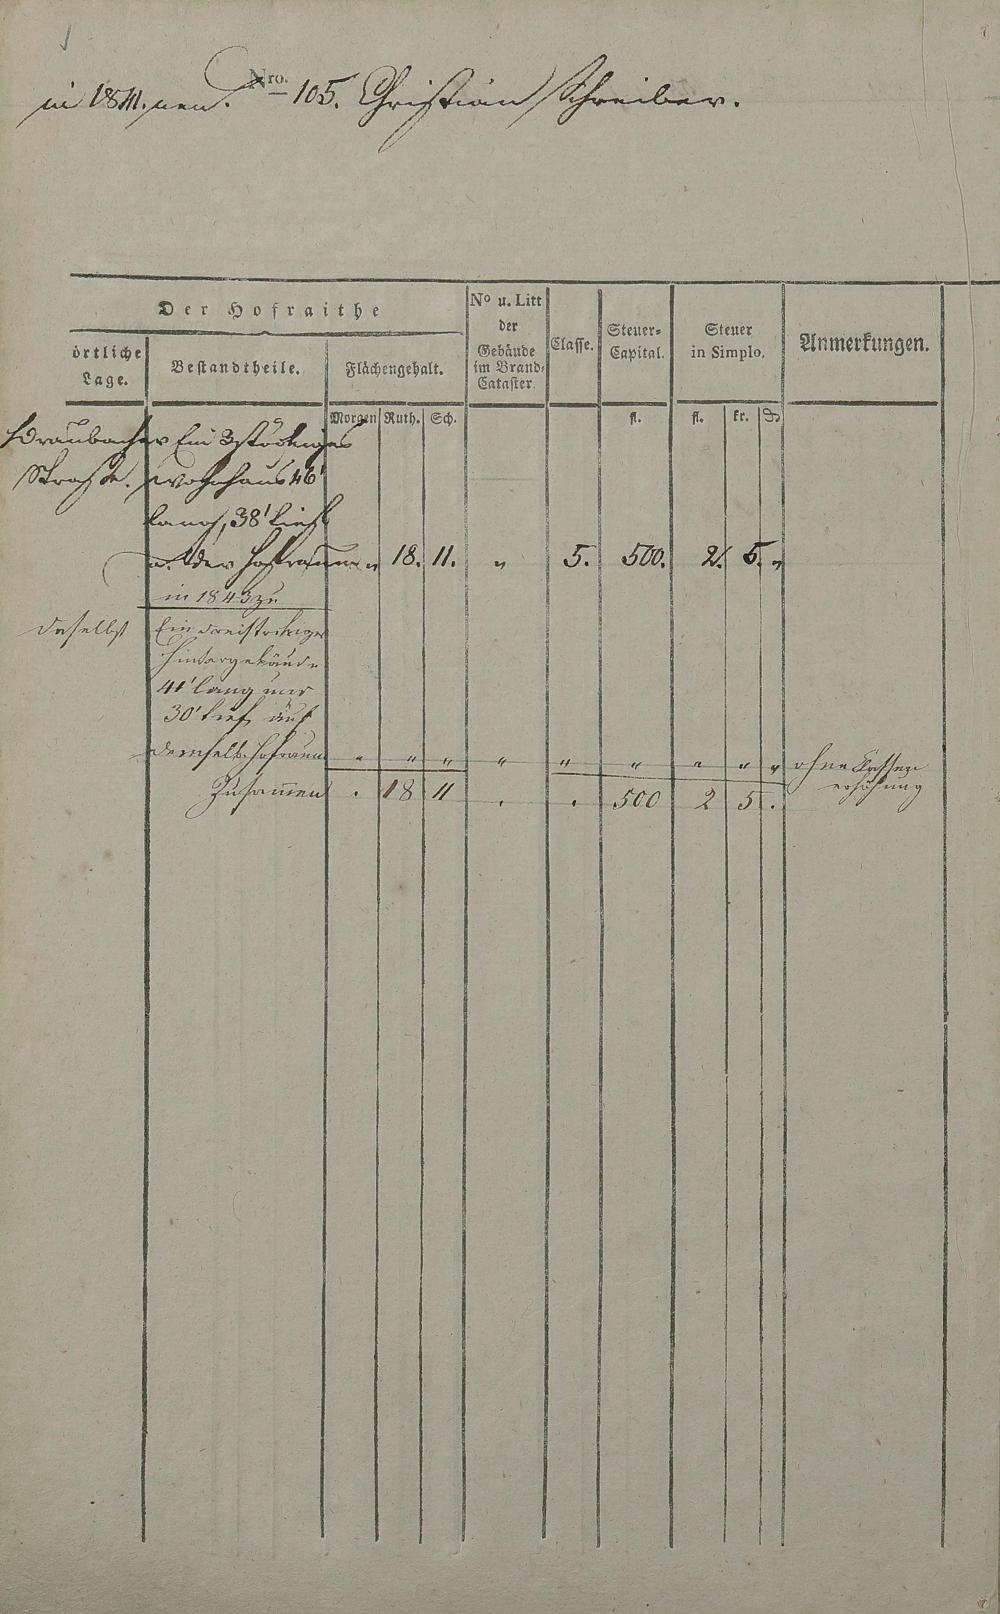 in 1841. neu. Nro. 105. Christian Schreiber.
Der Hofraithe
örtliche Lage.
Bestandtheile.
Flächengehalt.
No u. Litt der Gebäude im Brand-Cataster.
Classe.
Steuer-Capital.
Steuer in Simplo.
Anmerkungen.
Morgen Ruth. Sch. fl. fl. kr. ₰
Ein 3stöckiges
Straße. Wohnhaus 46'
lang, 38' tief
u. der Hofraum " 18. 11. " 5. 500. 2. 5. "
in 1843 zu
daselbst Ein dreistockiges
Hintergebäude
41' lang und
30' tief auf
demselb. Hofraum " " " " " " " " " ohne Classen
erhöhung
Zusammen . 18 11 . . 500 2 5 .